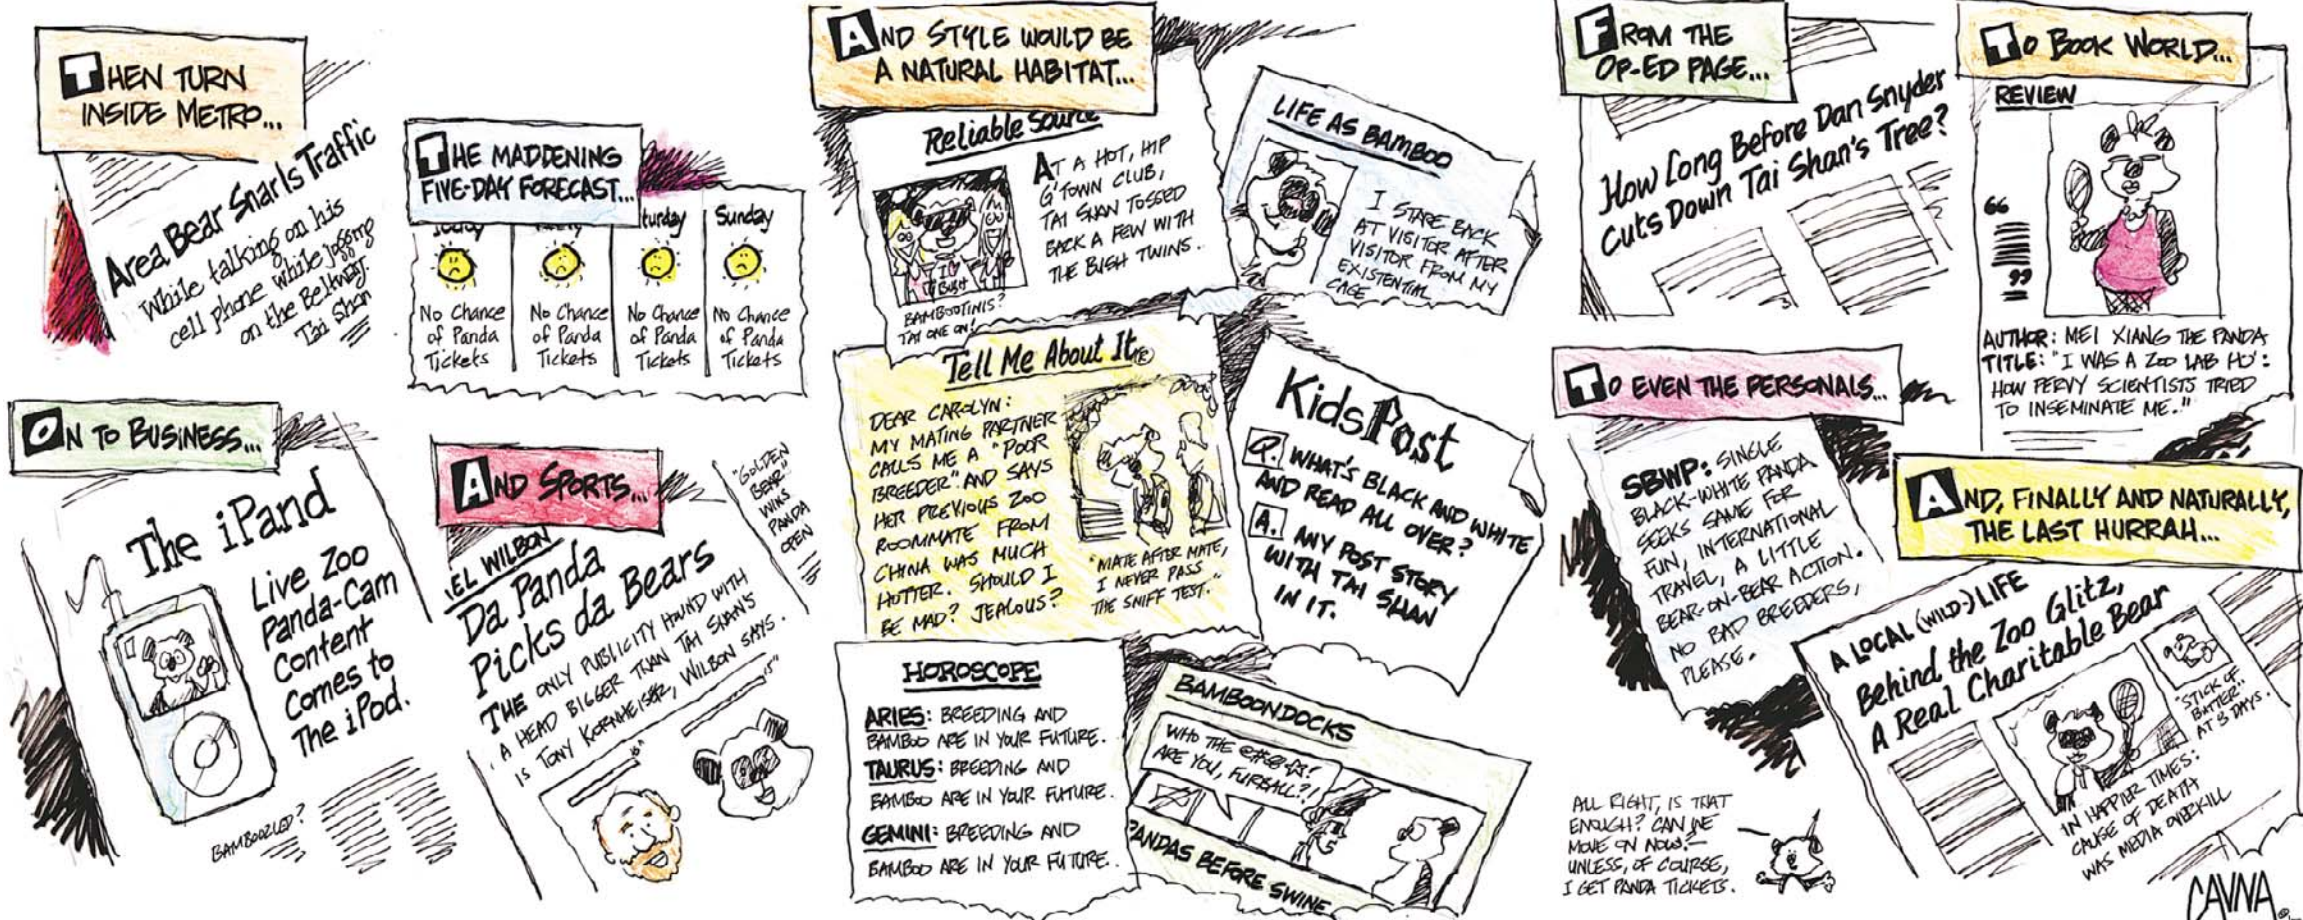 THEN TURN
INSIDE METRO...
Area Bear Snarls Traffic
While talking on his
cell phone while jogging
on the Beltway,
Tai Shan
THE MADDENING
FIVE-DAY FORECAST...
Today
turday
Sunday
No Chance
of Panda
Tickets
No Chance
of Panda
Tickets
No Chance
of Panda
Tickets
No Chance
of Panda
Tickets
ON TO BUSINESS...
The iPand
Live Zoo
Panda-Cam
Content
Comes to
The iPod.
BAMBOOZLED?
AND SPORTS...
EL WILBON
Da Panda
Picks da Bears
THE ONLY PUBLICITY HOUND WITH
A HEAD BIGGER THAN TAI SHAN'S
IS TONY KORNHEISER, WILBON SAYS.
"GOLDEN
BEAR"
WINS
PANDA
OPEN
AND STYLE WOULD BE
A NATURAL HABITAT...
Reliable Source
AT A HOT, HIP
G'TOWN CLUB,
TAI SHAN TOSSED
BACK A FEW WITH
THE BUSH TWINS.
BAMBOOTINIS?
TAI ONE ON!
LIFE AS BAMBOO
I STARE BACK
AT VISITOR AFTER
VISITOR FROM MY
EXISTENTIAL
CAGE
Tell Me About It®
DEAR CAROLYN:
MY MATING PARTNER
CALLS ME A "POOR
BREEDER" AND SAYS
HER PREVIOUS ZOO
ROOMMATE FROM
CHINA WAS MUCH
HOTTER. SHOULD I
BE MAD? JEALOUS?
"MATE AFTER MATE,
I NEVER PASS
THE SNIFF TEST."
KidsPost
Q. WHAT'S BLACK AND WHITE
AND READ ALL OVER?
A. ANY POST STORY
WITH TAI SHAN
IN IT.
HOROSCOPE
ARIES: BREEDING AND
BAMBOO ARE IN YOUR FUTURE.
TAURUS: BREEDING AND
BAMBOO ARE IN YOUR FUTURE.
GEMINI: BREEDING AND
BAMBOO ARE IN YOUR FUTURE.
BAMBOONDOCKS
WHO THE @#$@-☆!
ARE YOU, FURBALL?!
PANDAS BEFORE SWINE
FROM THE
OP-ED PAGE...
How Long Before Dan Snyder
Cuts Down Tai Shan's Tree?
TO BOOK WORLD...
REVIEW
"
"
AUTHOR: MEI XIANG THE PANDA
TITLE: "I WAS A ZOO LAB HO':
HOW PERVY SCIENTISTS TRIED
TO INSEMINATE ME."
TO EVEN THE PERSONALS...
SBWP: SINGLE
BLACK-WHITE PANDA
SEEKS SAME FOR
FUN, INTERNATIONAL
TRAVEL, A LITTLE
BEAR-ON-BEAR ACTION.
NO BAD BREEDERS,
PLEASE.
AND, FINALLY AND NATURALLY,
THE LAST HURRAH...
A LOCAL (WILD-) LIFE
Behind the Zoo Glitz,
A Real Charitable Bear
"STICK OF
BUTTER"
AT 3 DAYS.
IN HAPPIER TIMES:
CAUSE OF DEATH
WAS MEDIA OVERKILL
ALL RIGHT, IS THAT
ENOUGH? CAN WE
MOVE ON NOW?—
UNLESS, OF COURSE,
I GET PANDA TICKETS.
CAVNA